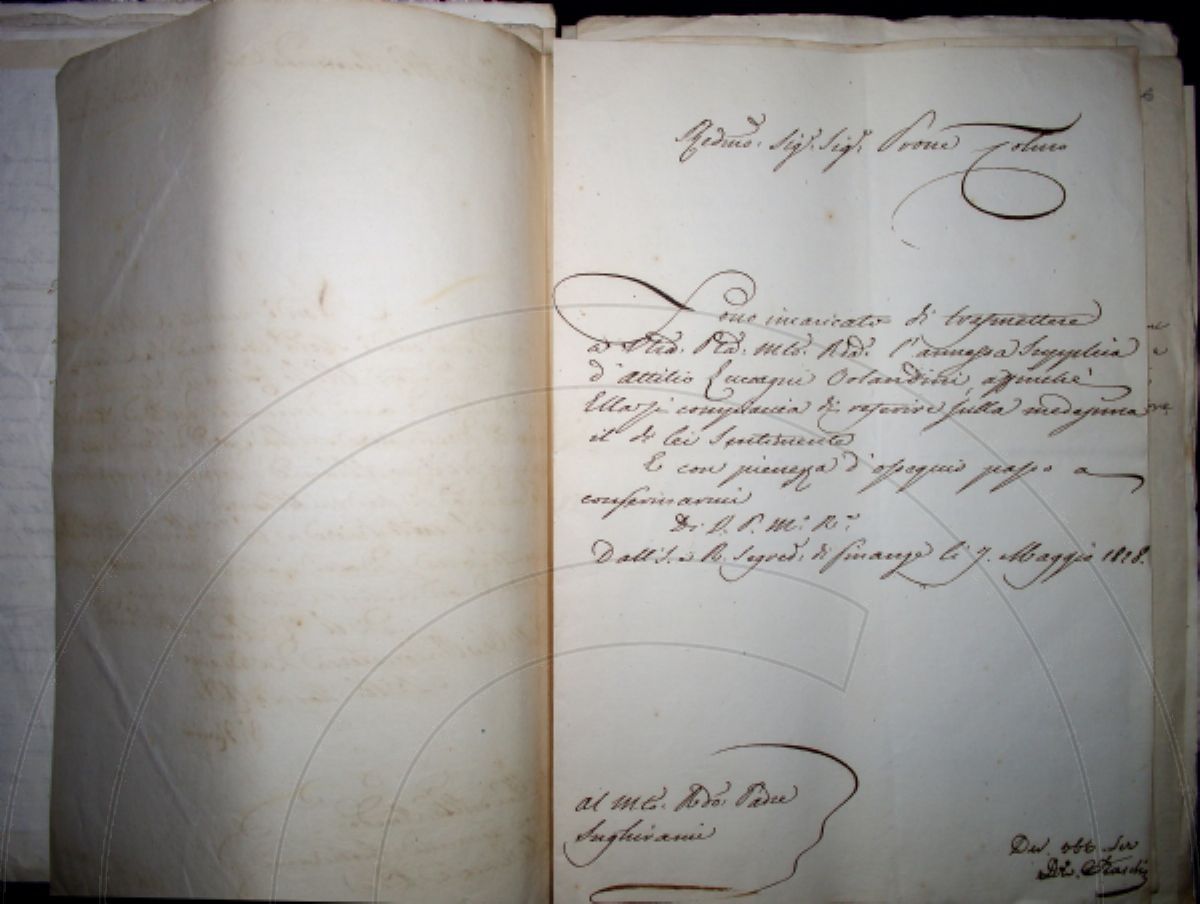 Redmo. Sigr. Sigr. Prone Colmo
Sono incaricato di trasmettere
a Ptà. Mto. Rda. l'annessa Supplica
d'Attilio Orlandini, affinché
Ella si compiaccia di referire sulla medesima
il di lei Sentimento
E con pienezza d'ossequio passo a
confermarmi
Di V. P. Mo. Ra.
Dall'I. e R. Segred. di finanze li 7. Maggio 1828.
Al Mto. Rdo. Padre
Inghirami
Dev. obb. Ser